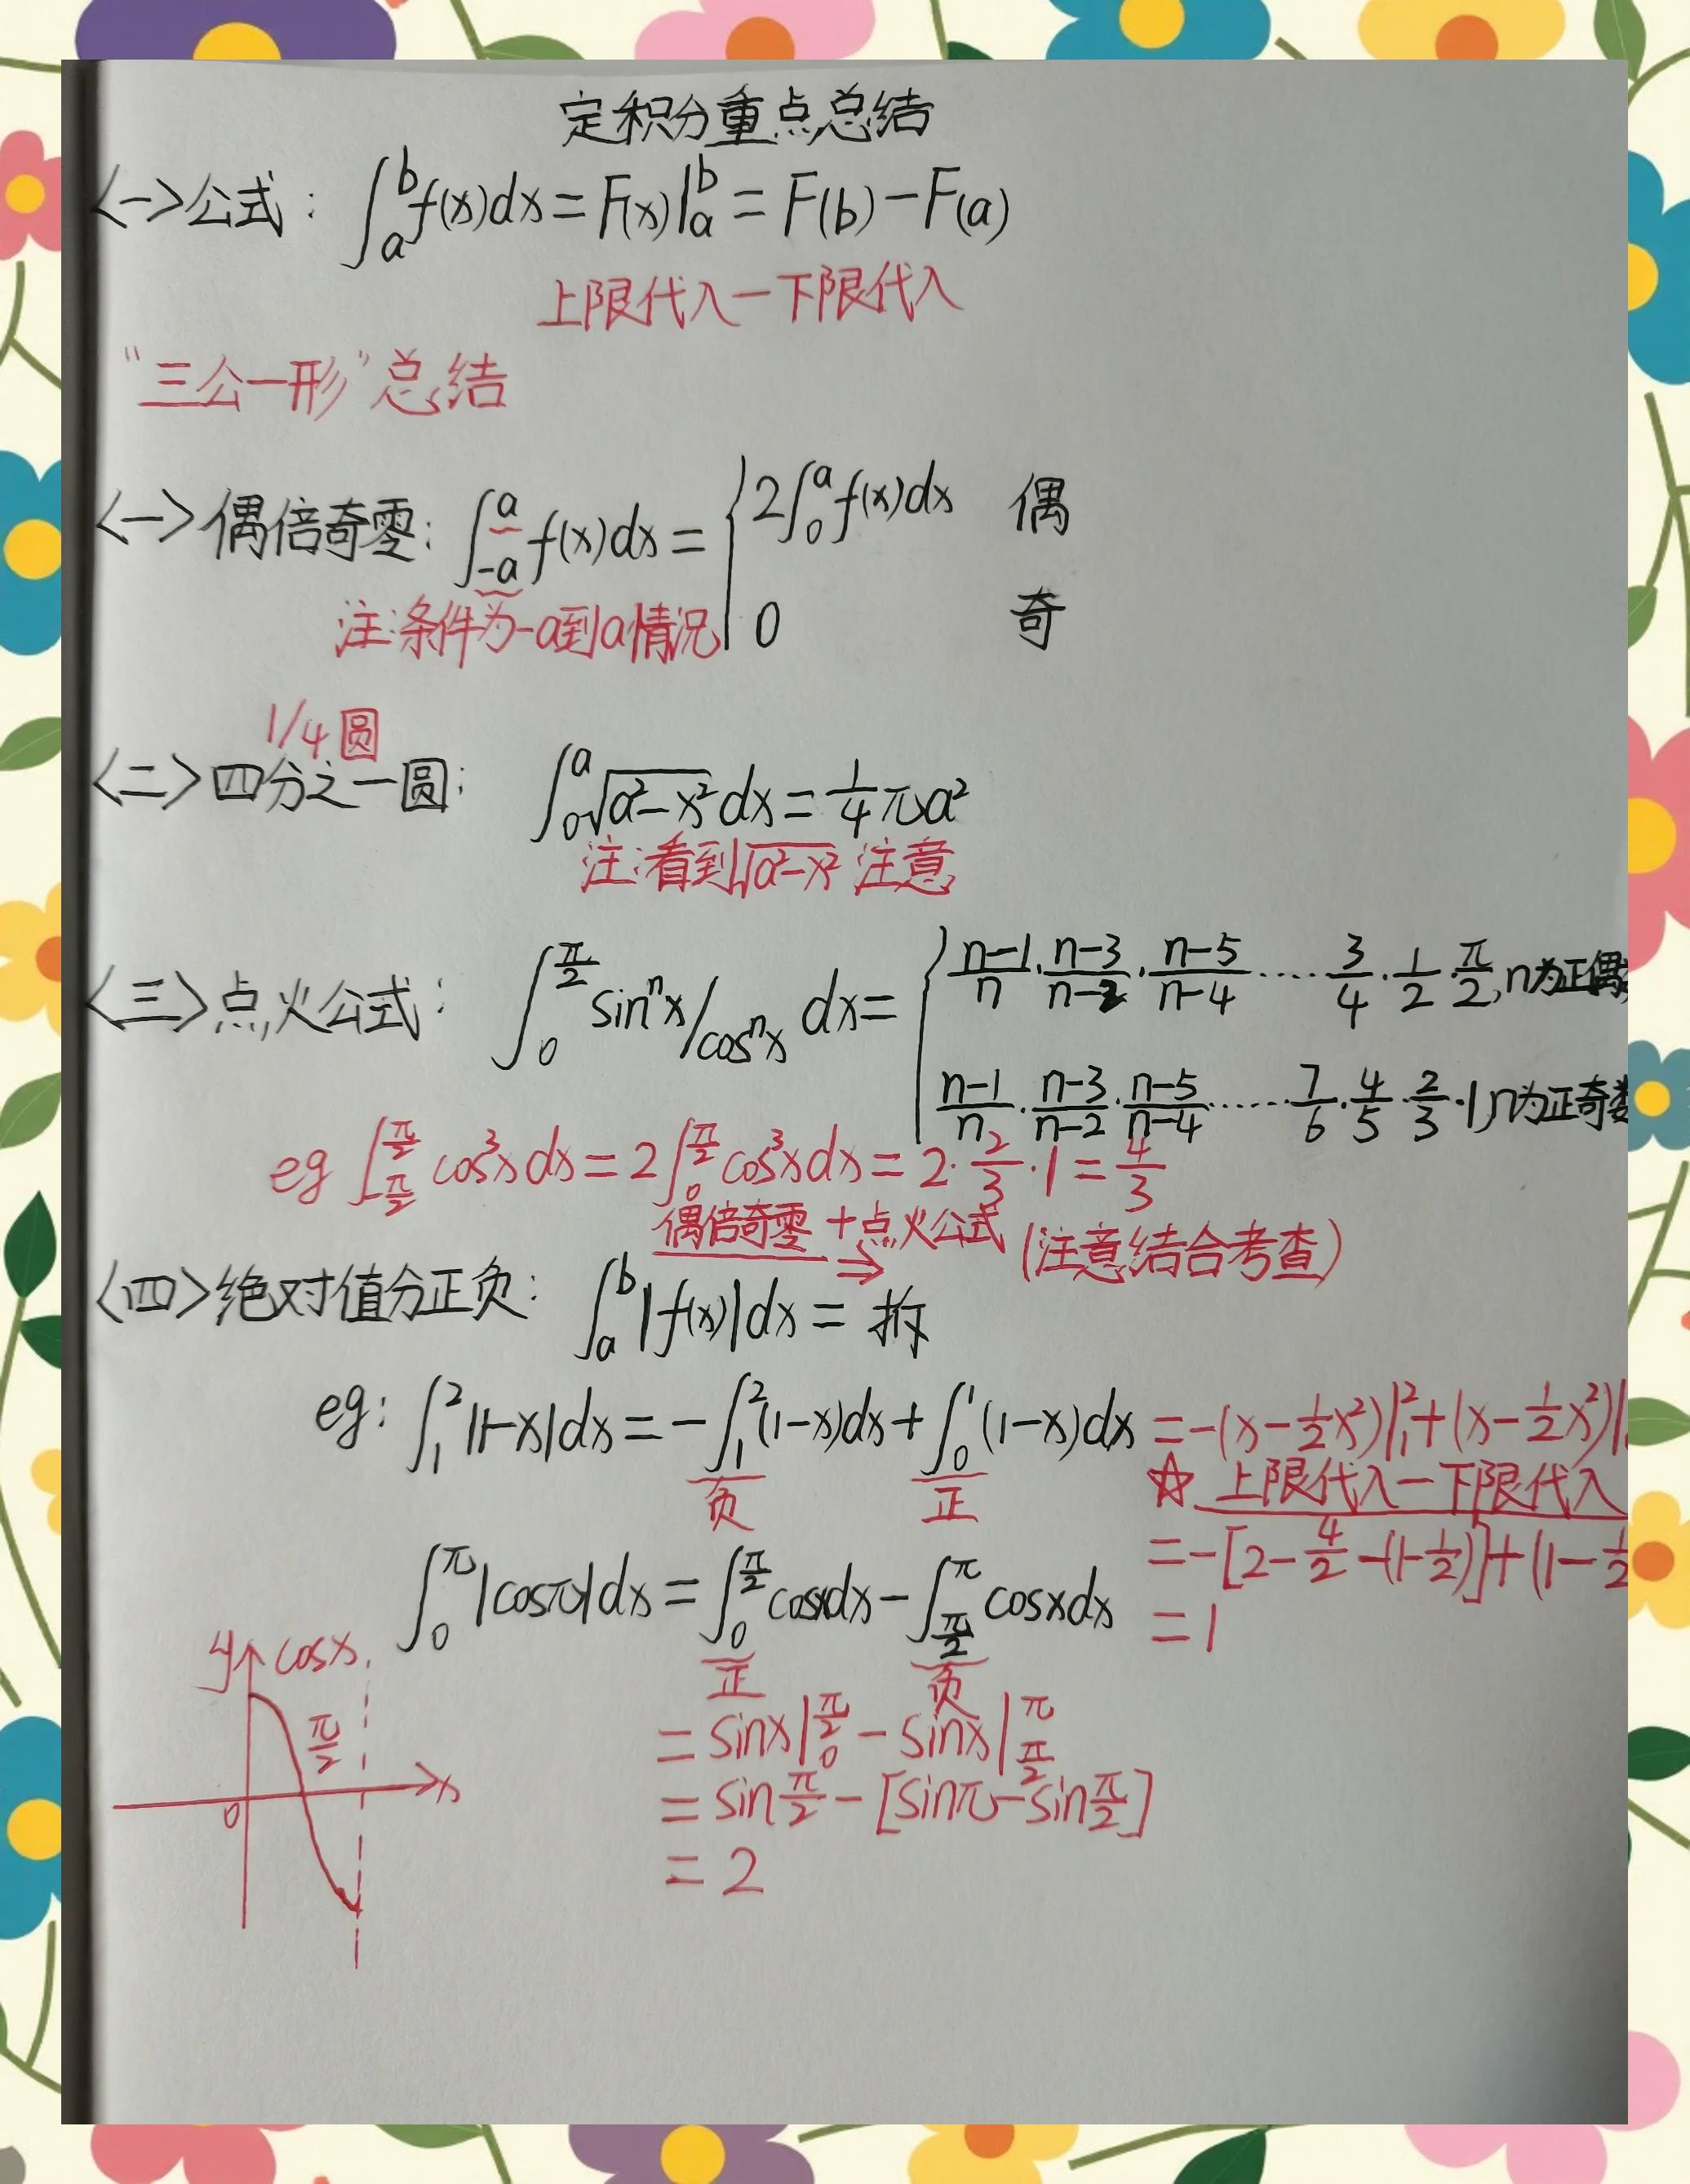 定积分重点总结
<一>公式: ∫_a^b f(x)dx = F(x)|_a^b = F(b) - F(a)
上限代入一下限代入
“三公一形”总结
<一>偶倍奇零: ∫_{-a}^a f(x)dx = { 2∫_0^a f(x)dx 偶
0 奇
注:条件为-a到a情况
1/4圆
<二>四分之一圆: ∫_0^a √(a²-x²) dx = 1/4 πa²
注:看到√(a²-x²) 注意
<三>点火公式: ∫_0^{π/2} sin^n x/cos^n x dx = { (n-1)/n · (n-3)/(n-2) · (n-5)/(n-4) ····· 3/4 · 1/2 · π/2, n为正偶
(n-1)/n · (n-3)/(n-2) · (n-5)/(n-4) ······ 7/6 · 4/5 · 2/3 · 1, n为正奇数
eg ∫_{-π/2}^{π/2} cos³x dx = 2∫_0^{π/2} cos³x dx = 2 · 2/3 · 1 = 4/3
偶倍奇零 + 点火公式 (注意结合考查)
⇒
<四>绝对值分正负: ∫_a^b |f(x)|dx = 拆
eg: ∫_1^2 |1-x|dx = -∫_1^2 (1-x)dx + ∫_0^1 (1-x)dx = -(x - 1/2 x²)|_1^2 + (x - 1/2 x²)|
负 正
☆ 上限代入一下限代入
= -[2 - 4/2 - (1 - 1/2)] + (1 - 1/2
= 1
∫_0^π |cosπ|dx = ∫_0^{π/2} cosxdx - ∫_{π/2}^π cosxdx
正 负
= sinx|_0^{π/2} - sinx|_{π/2}^π
= sin π/2 - [sinπ - sin π/2]
= 2
y cosx
π/2
0 x